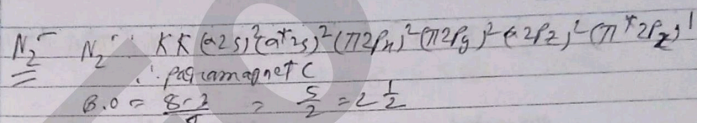 N₂⁻ N₂⁻ : KK (σ2s)² (σ*2s)² (π2Px)² (π2Py)² (σ2Pz)² (π*2Px)¹
∴ paramagnetic
B.O = 8-3/2 = 5/2 = 2 1/2